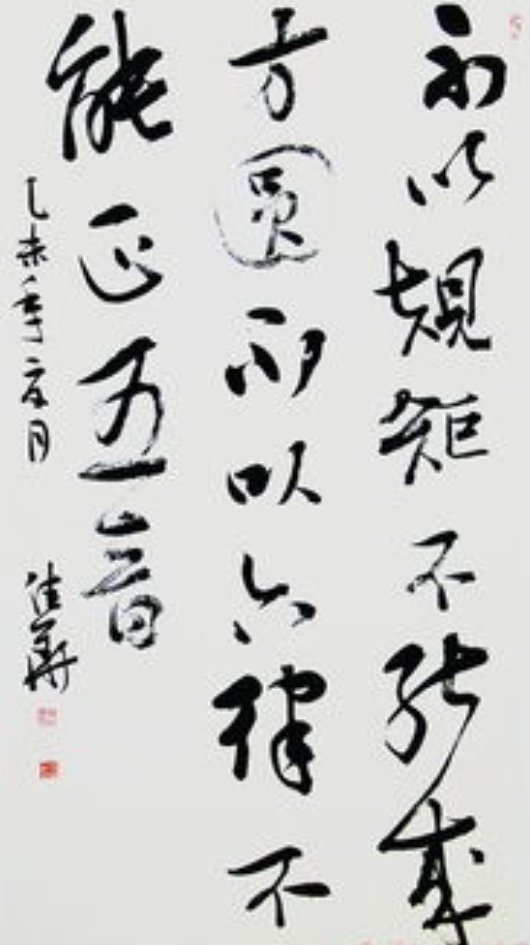 不以規矩不能成
方圓不以六律不
能正五音
乙未年月
佳華